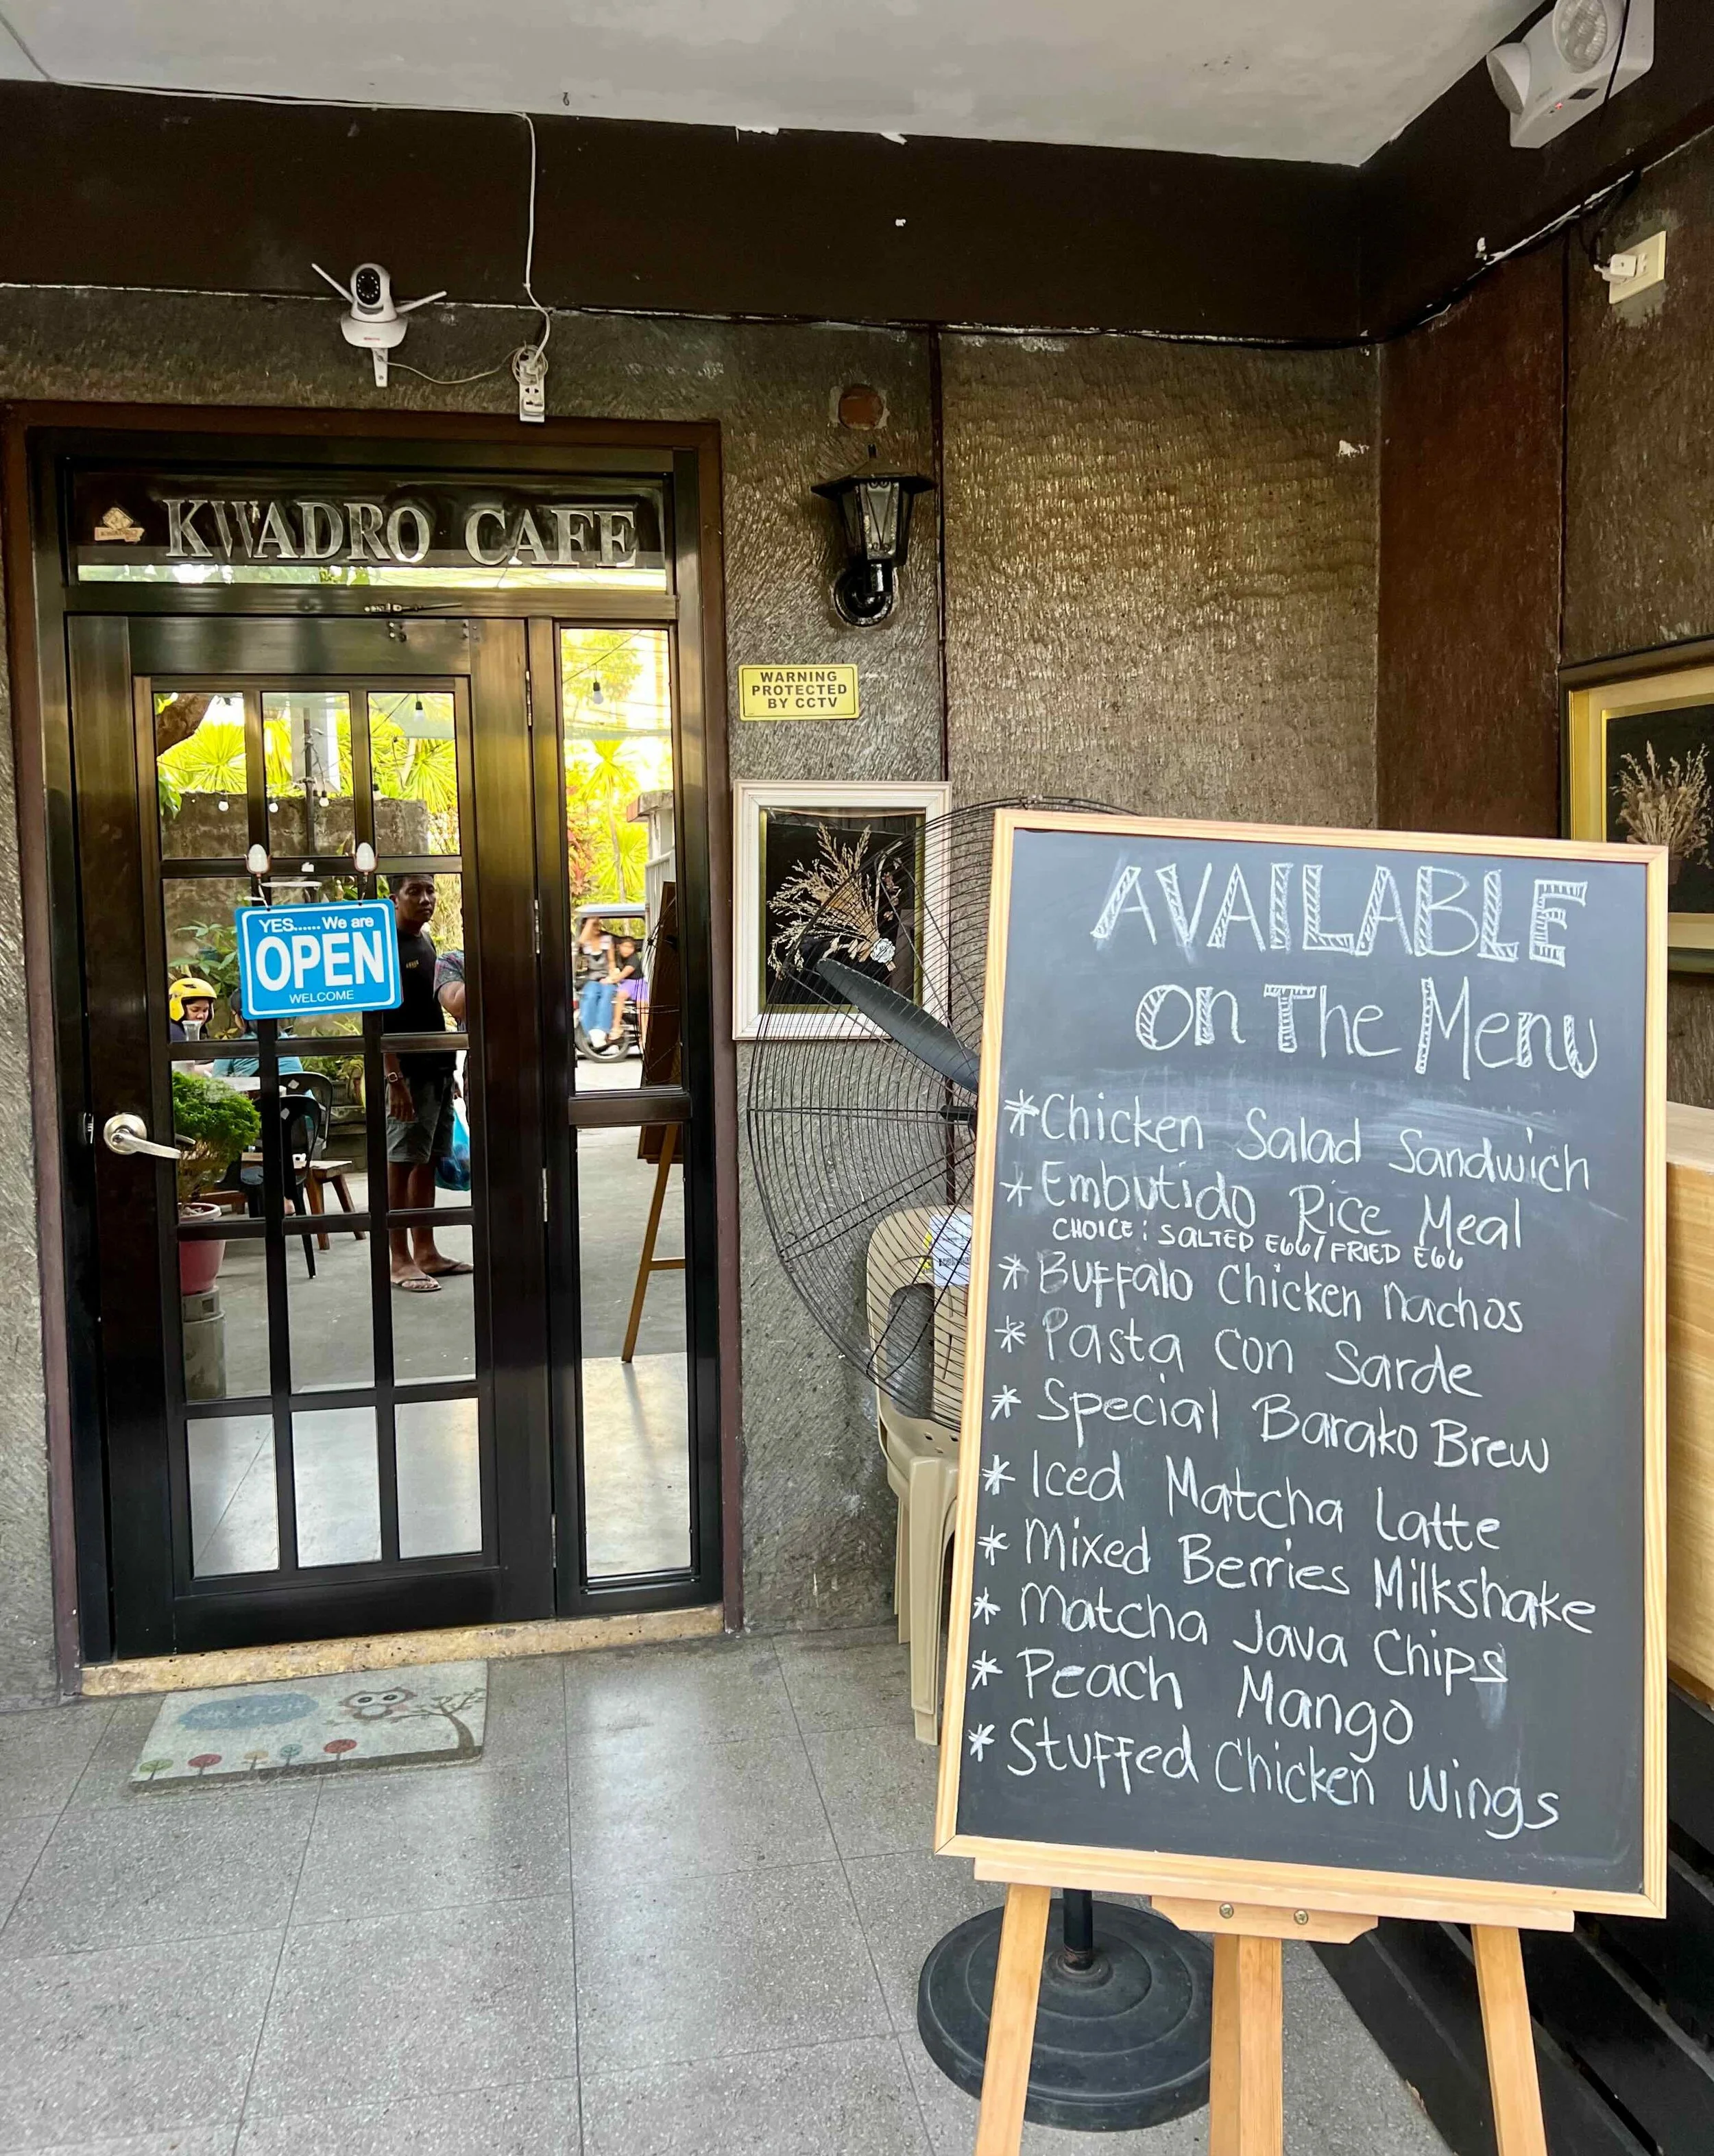 KWADRO CAFE
WARNING
PROTECTED
BY CCTV
YES...... We are
OPEN
WELCOME
AVAILABLE
On The Menu
* Chicken Salad Sandwich
* Embutido Rice Meal
CHOICE : SALTED EGG / FRIED EGG
* Buffalo Chicken nachos
* Pasta con Sarde
* Special Barako Brew
* Iced Matcha Latte
* Mixed Berries Milkshake
* Matcha Java Chips
* Peach Mango
* Stuffed Chicken Wings